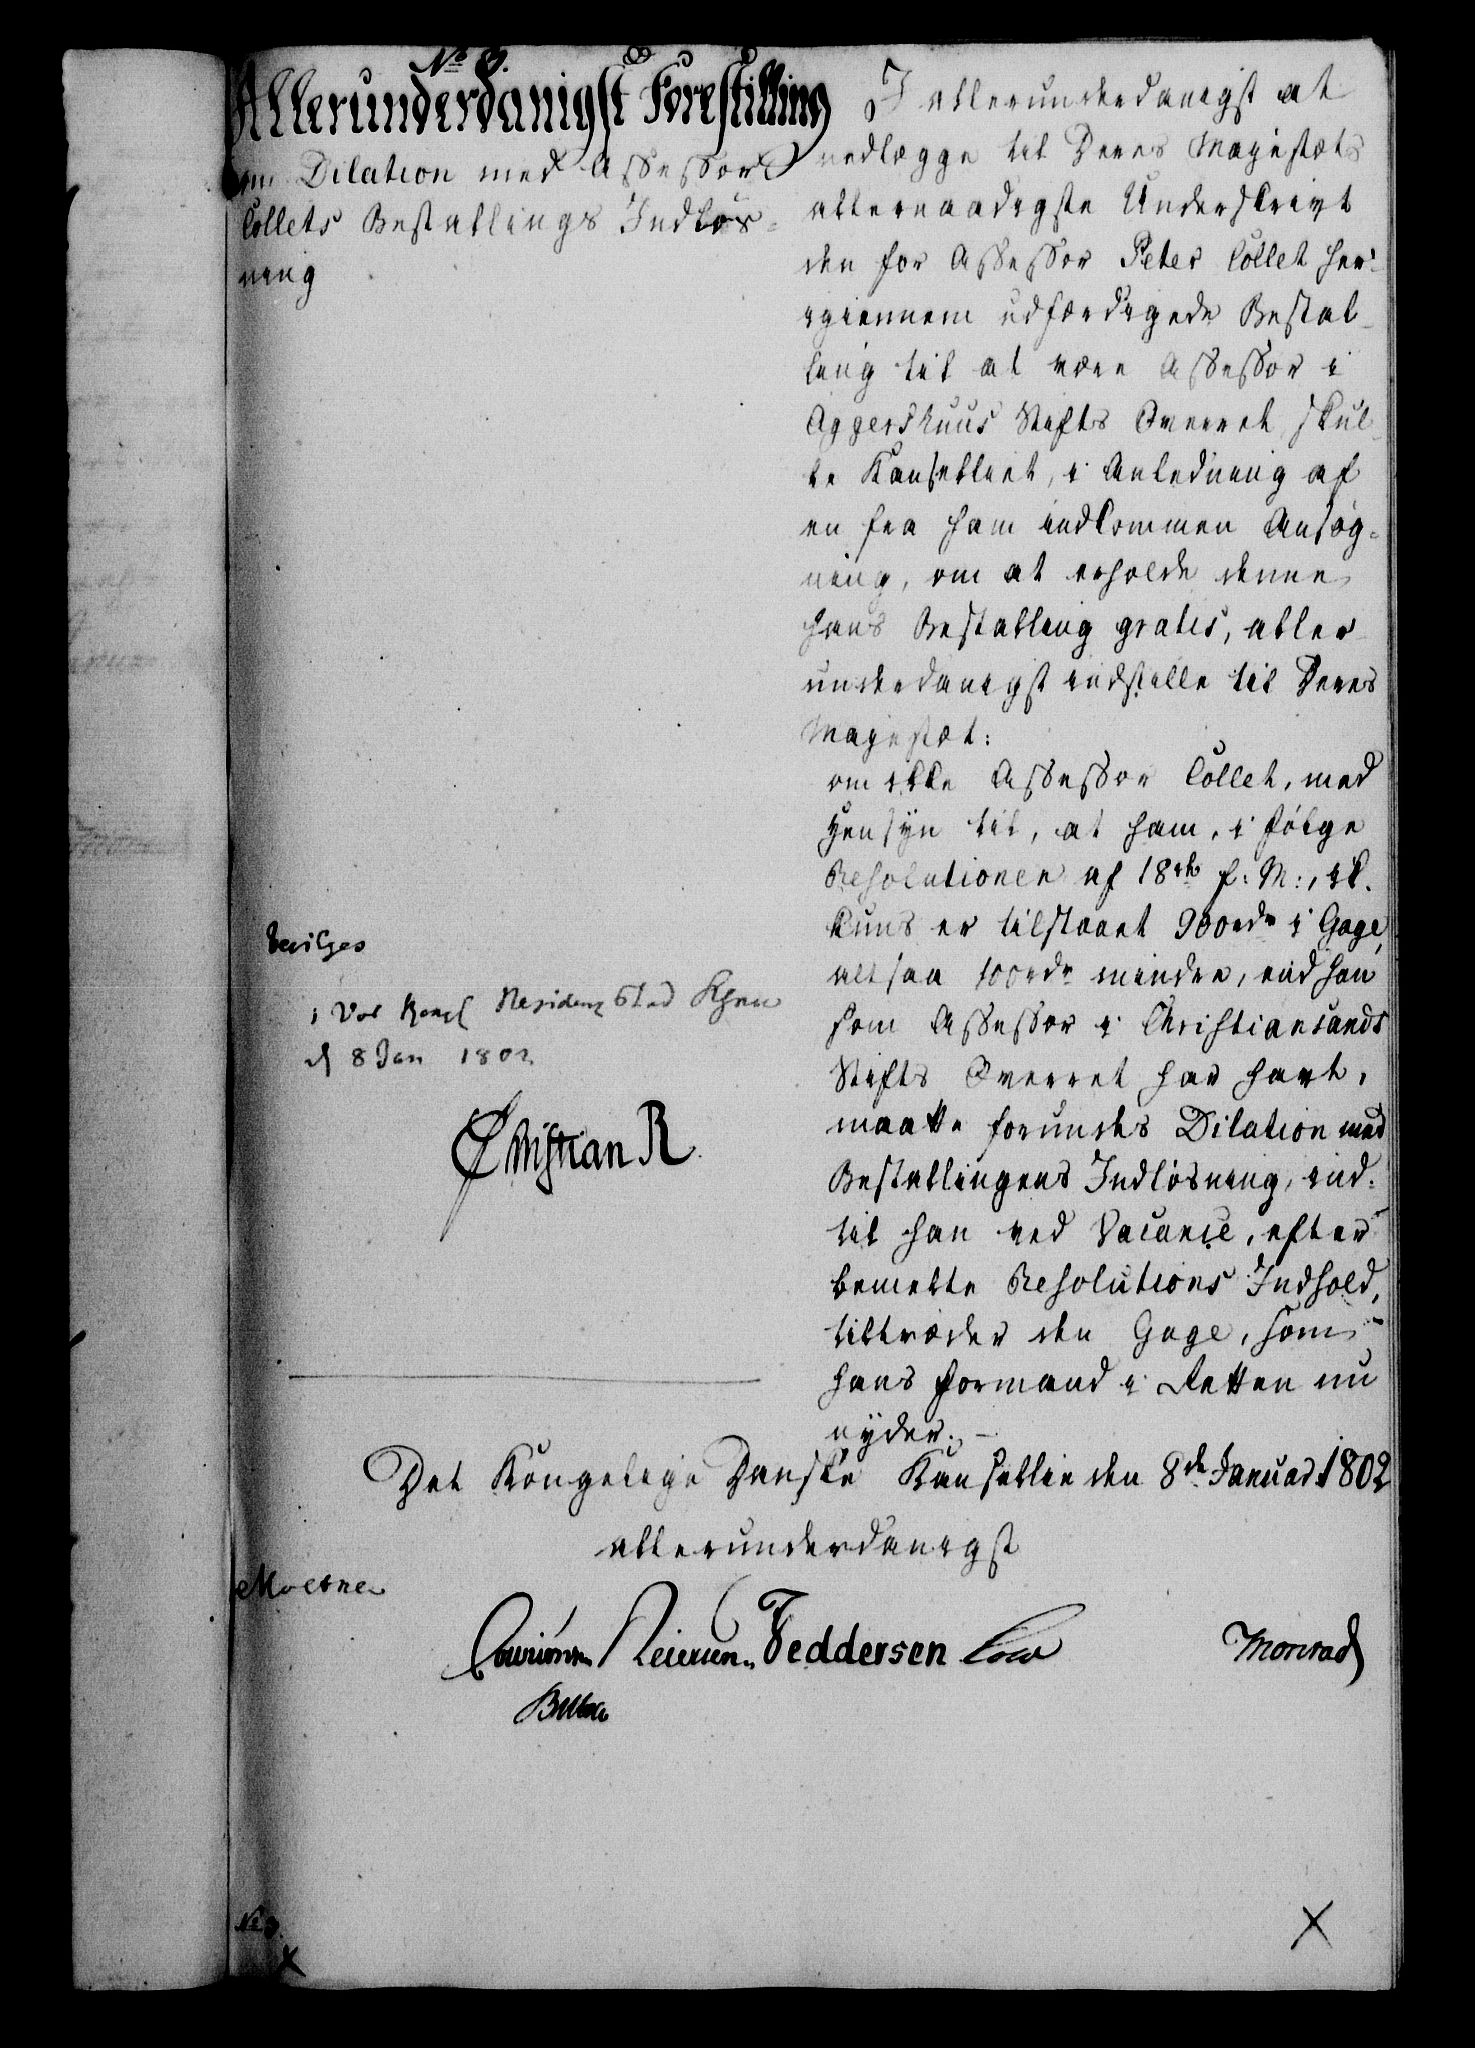 No 8.
Allerunderdanigst Forestilling
om Dilation med Assessor
Collets Bestallings Indløs-
ning
I allerunderdanigst at
nedlægge til Deres Majestæts
allernaadigste Underskrivt
den for Assessor Peter Collet her-
igiennem udfærdigede Bestal-
ling til at være Assessor i
Aggershuus Stifts Overret, skul-
de Kanselliet, i Anledning af
en fra ham indkommen Ansøg-
ning, om at erholde denne
hans Bestalling gratis, aller-
underdanigst indstille til Deres
Majestæt:
om ikke Assessor Collet, med
Hensyn til, at ham, i følge
Resolutionen af 18de f: M:,
kuns er tilstaaet 900rdr i Gage,
altsaa 100rdr mindre, end han
som Assessor i Christiansands
Stifts Overret har havt,
maatte forundes Dilation med
Bestallingens Indløsning, ind-
til han ved Vacance, efter
bemelte Resolutions Indhold,
tiltræder den Gage, som
hans Formand i Retten nu
nyder. -
bevilges
i Vor Kongl Residenz Stad Khavn
d 8 Jan 1802
Christian R
Det Kongelige Danske Kansellie den 8de Januar 1802
allerunderdanigst
Moesner
Feddersen Monrad
Bülow
No 8.